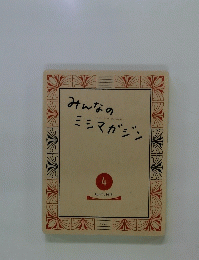 みんなの
ミシマガジン
4